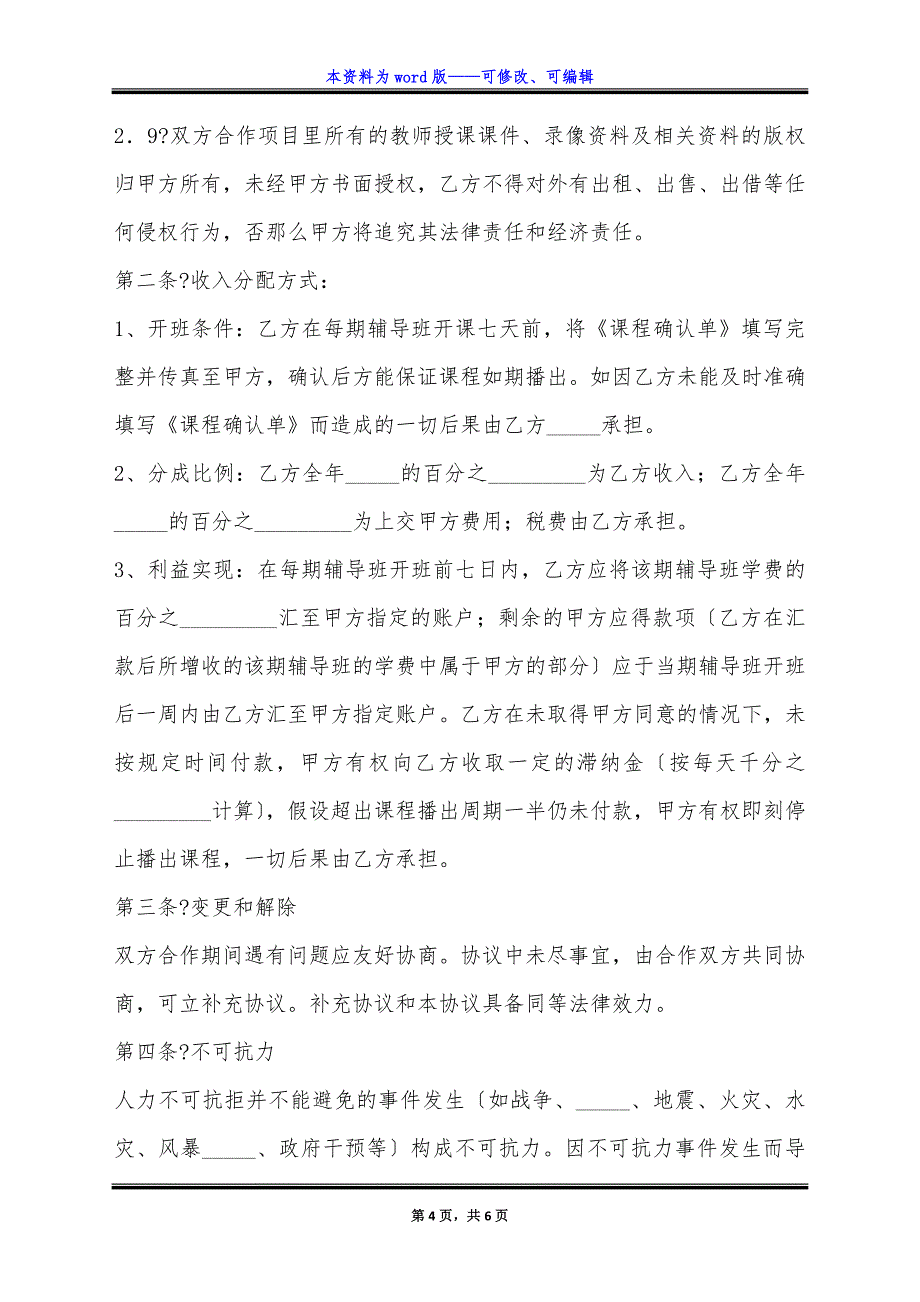 本资料为 word 版——可修改、可编辑
2．9?双方合作项目里所有的教师授课课件、录像资料及相关资料的版权
归甲方所有，未经甲方书面授权，乙方不得对外有出租、出售、出借等任
何侵权行为，否那么甲方将追究其法律责任和经济责任。
第二条?收入分配方式：
1、开班条件：乙方在每期辅导班开课七天前，将《课程确认单》填写完
整并传真至甲方，确认后方能保证课程如期播出。如因乙方未能及时准确
填写《课程确认单》而造成的一切后果由乙方_____承担。
2、分成比例：乙方全年_____的百分之_________为乙方收入；乙方全年
_____的百分之_________为上交甲方费用；税费由乙方承担。
3、利益实现：在每期辅导班开班前七日内，乙方应将该期辅导班学费的
百分之_________汇至甲方指定的账户；剩余的甲方应得款项〔乙方在汇
款后所增收的该期辅导班的学费中属于甲方的部分〕应于当期辅导班开班
后一周内由乙方汇至甲方指定账户。乙方在未取得甲方同意的情况下，未
按规定时间付款，甲方有权向乙方收取一定的滞纳金〔按每天千分之
_________计算〕，假设超出课程播出周期一半仍未付款，甲方有权即刻停
止播出课程，一切后果由乙方承担。
第三条?变更和解除
双方合作期间遇有问题应友好协商。协议中未尽事宜，由合作双方共同协
商，可立补充协议。补充协议和本协议具备同等法律效力。
第四条?不可抗力
人力不可抗拒并不能避免的事件发生〔如战争、_____、地震、火灾、水
灾、风暴_____、政府干预等〕构成不可抗力。因不可抗力事件发生而导
第 4 页，共 6 页